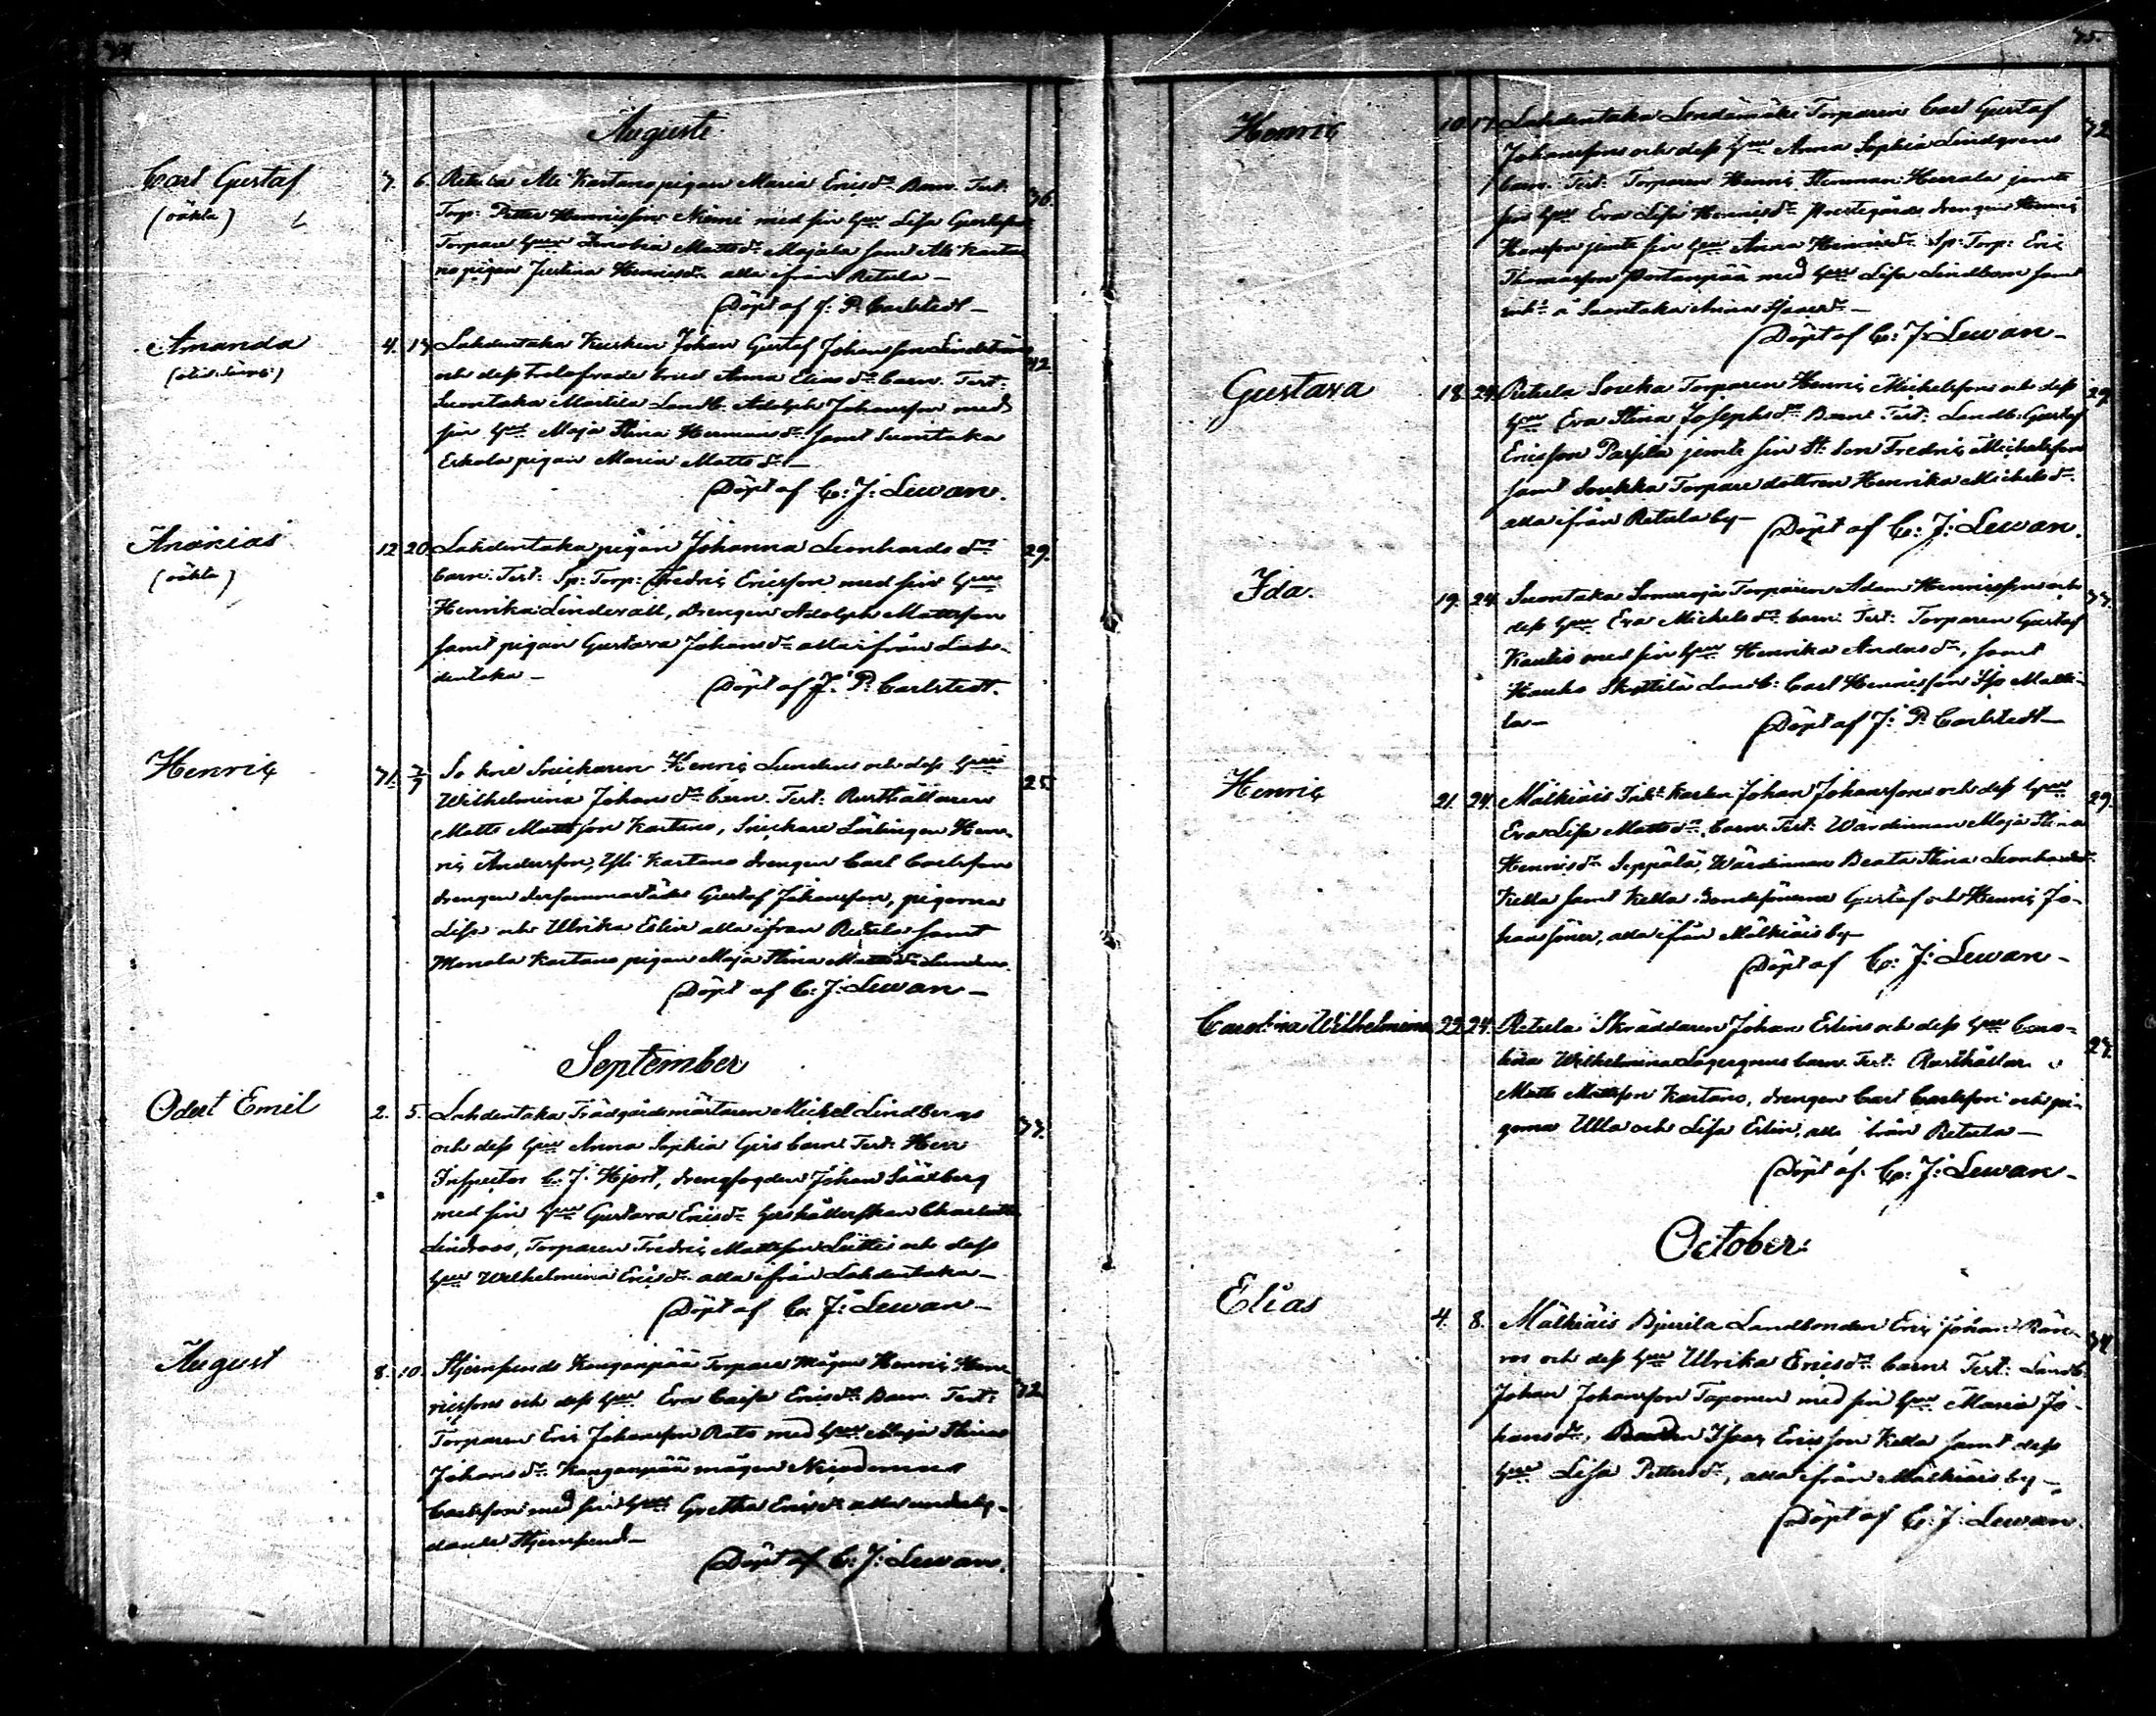 75.
Augusti
Carl Gustaf 7. 6. Retula Ali Kartano pigan Maria Ericsdr Barn. Test:
(oäkta) Torp: Petter Henricsson Niemi med sin hustru Lisa Gustafsdr 36.
Torpare hustrun Zenobia Mattsdr Majala samt Ali Karta
no pigan Justina Henricsdr alla ifrån Retula —
Döpt af J. P. Carlstedt —
Amanda 4. 13 Lahdentaka Kusken Johan Gustaf Johansson Lindström
och dess trolofvade brud Anna Eliasdr barn. Test: 42.
Suontaka Martila Landb. Adolph Johansson med
sin hustru Maja Stina Hermansdr samt Suontaka
Eskola pigan Maria Mattsdr —
Döpt af C: J: Lewan.
Ananias 12 20 Lahdentaka pigan Johanna Leonhardsdr 29.
(oäkta) barn. Test: Sp: Torp: Fredric Ericsson med sin hustru
Henrika Linderall, drengen Adolph Mattsson
samt pigan Gustava Johansdr alla ifrån Lah-
dentaka — Döpt af J. P. Carlstedt.
Henric 31. 7/9 So hné Snickaren Henric Lundens och dess hustru 25
Wilhelmina Johansdr barn. Test: Rusthållaren
Matts Mattsson Kartano, Snickare Lärlingen Hen-
ric Andersson, Yli Kartano drengen Carl Carlsson
drengen dersammastädes Gustaf Johansson, pigorna
Lisa och Ulrika Erlin alla ifrån Retula samt
Monola Kartano pigan Maja Stina Mattsdr Lunden.
Döpt af C: J: Lewan —
September
Odert Emil 2. 5. Lahdentaka Trädgårdsmästaren Mickel Lindbergs
och dess hustru Anna Sophia Girs barn. Test: Herr 33.
Inspector C. J. Hjort, drengfogden Johan Säärberg
med sin hustru Gustava Ericsdr Hushållerskan Charlotta
Lindroos, Torparen Fredric Mattsson Luttis och dess
hustru Wilhelmina Ericsdr alla ifrån Lahdentaka —
Döpt af C. J: Lewan —
August 8. 10. Stjernsunds Kanganpää Torpare Mågen Henric Hen-
ricssons och dess hustru Eva Caisa Ericsdr Barn. Test: 32
Torparen Eric Johansson Rats med hustru Maja Stina
Johansdr Kanganpää mågen Nicodemus
Carlsson med sin hustru Gretha Ericsdr alla underly-
dande Stjernsund —
Döpt af C: J: Lewan.
Henric 10 17 Lahdentaka Lendämäki Torparen Carl Gustaf 32
Johanssons och dess hustru Anna Sophia Lindgrens
barn. Test: Torparen Henric Stenman Heerala jemte
sin hustru Eva Lisa Henricsdr Prestegårds drengen Henric
Hansson jemte sin hustru Anna Henricsdr Sp: Torp: Eric
Thomasson Portanpää med hustru Lisa Lindbom samt
enk: å Suontaka Anna Isacsdr —
Döpt af C: J: Lewan —
Gustava 18. 24. Retula Soukka Torparen Henric Mickelssons och dess 29.
hustru Eva Stina Josephsdr Barn. Test: Landb: Gustaf
Ericsson Parsila jemte sin St: Son Fredric Mickelsson
samt Soukka Torpare dottren Henrika Mickelsdr
alla ifrån Retula by — Döpt af C: J: Lewan.
Ida. 19. 24. Suontaka Someroja Torparen Adam Henricssons och 33.
dess hustru Eva Mickelsdr barn. Test: Torparen Gustaf
Kautis med sin hustru Henrika Andersdr, samt
Hauho Skyttilä Landb: Carl Henricsson Iso Matti-
la — Döpt af J. P. Carlstedt —
Henric 21. 24. Mälkiäis Inh: karlen Johan Johanssons och dess hustru 29.
Eva Lisa Mattsdr barn. Test: Wärdinnan Maja Stina
Henricsdr Seppälä, Wärdinnan Beata Stina Leonhardsdr
Kella samt Kella Bondesönerna Gustaf och Henric Jo-
hanssöner, alla ifrån Mälkiäis by —
Döpt af C: J: Lewan —
Carolina Wilhelmina 22. 24. Retula Skräddaren Johan Erlins och dess hustru Caro-
lina Wilhelmina Lagergrens barn. Test: Rusthållar 27.
Matts Mattsson Kartano, drengen Carl Carlsson och pi-
gorna Ulla och Lisa Erlin, alla från Retula —
Döpt af C: J: Lewan —
October:
Elias 4. 8. Mälkiäis Bjurila Landbonden Eric Johan Rön- 34
ros och dess hustru Ulrika Ericsdr barn. Test: Landb.
Johan Johansson Taponen med sin hustru Maria Jo-
hansdr, Bonden Isaac Ericsson Kella samt dess
hustru Lisa Pettersdr, alla ifrån Mälkiäis by —
Döpt af C: J: Lewan.